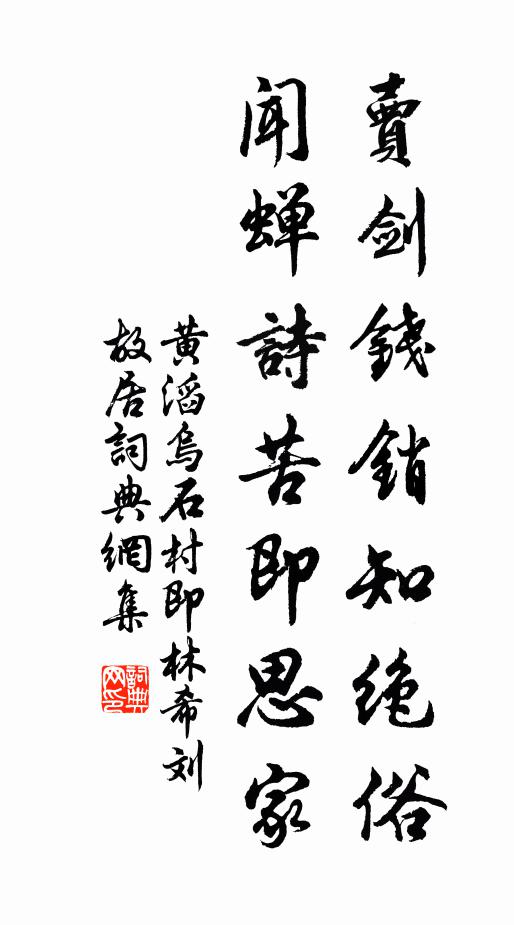 賣劍錢銷知絶俗
聞蝉詩苦即思家
黄滔烏石村即林希刘
故居詞典網集
詞典网印